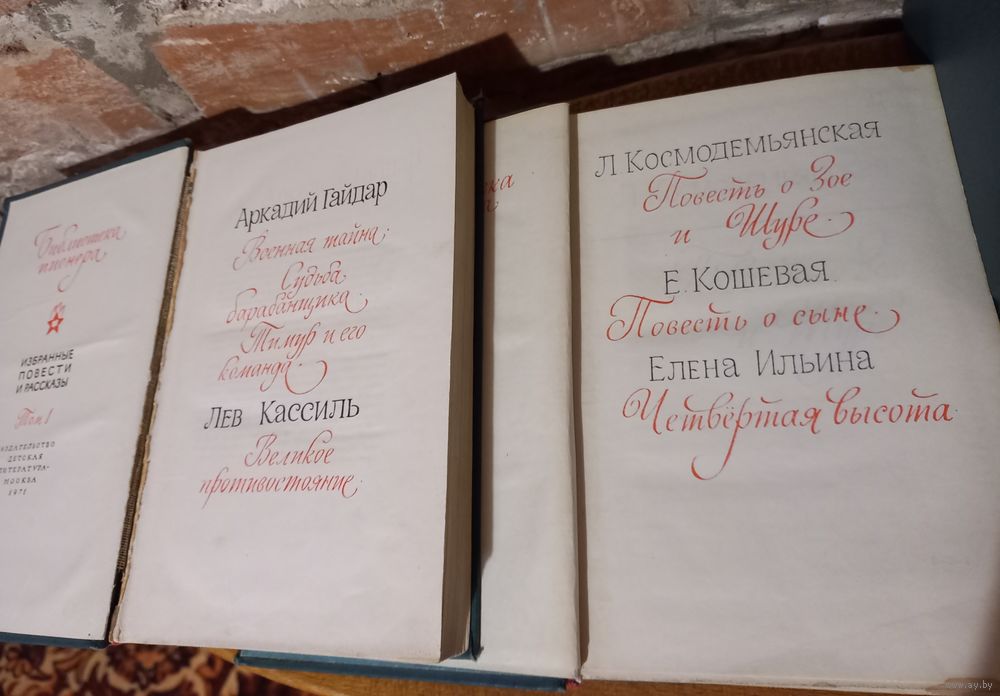 Библиотека
пионера
ИЗБРАННЫЕ
ПОВЕСТИ
И РАССКАЗЫ
Том 1
ДЕТСКАЯ
МОСКВА
1971
Аркадий Гайдар
Военная тайна.
Судьба
барабанщика.
Тимур и его
команда.
Лев Кассиль
Великое
противостояние.
Л. Космодемьянская
Повесть о Зое
и Шуре.
Е. Кошевая.
Повесть о сыне.
Елена Ильина
Четвёртая высота.
www.ay.by